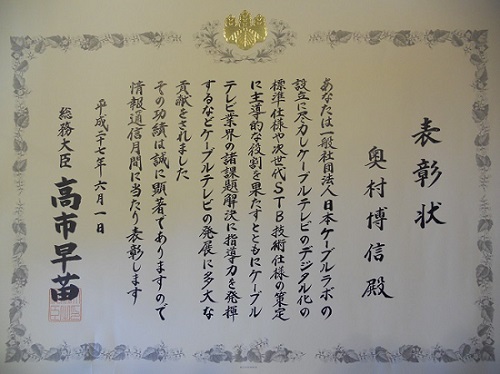 表彰状
奥村博信殿
あなたは一般社団法人日本ケーブルラボの
設立に尽力しケーブルテレビのデジタル化の
標準仕様や次世代STB技術仕様の策定
に主導的な役割を果たすとともにケーブル
テレビ業界の諸課題解決に指導力を発揮
するなどケーブルテレビの発展に多大な
貢献をされました
その功績は誠に顕著でありますので
情報通信月間に当たり表彰します
平成二十七年六月一日
総務大臣 高市早苗